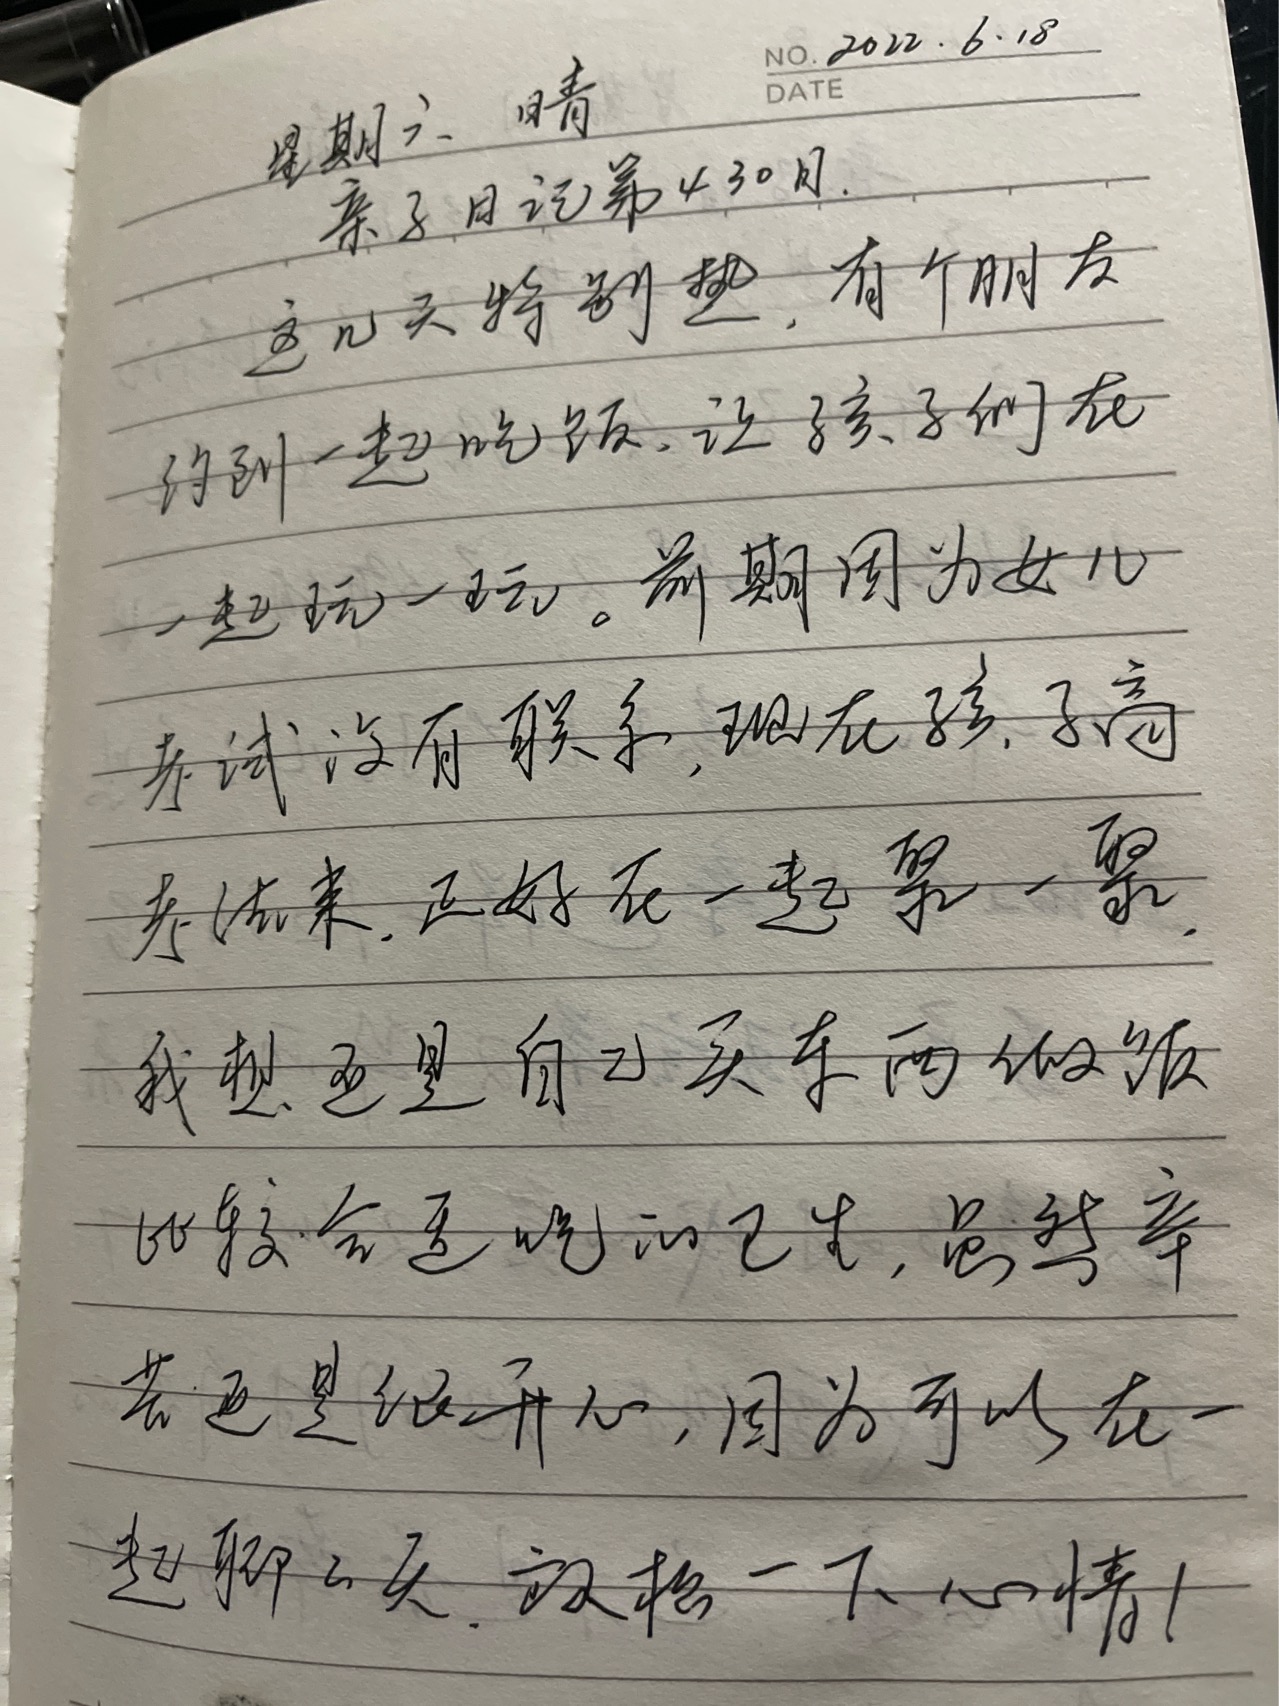 NO. 2022.6.18
DATE
星期六 晴
亲子日记第430日.
这几天特别热,有个朋友
约到一起吃饭,让孩子们在
一起玩一玩。前期因为女儿
考试没有联系,现在孩子高
考结束,正好在一起聚一聚,
我想还是自己买东西做饭
比较合适吃的卫生,虽然辛
苦还是很开心,因为可以在一
起聊聊天,放松一下心情!